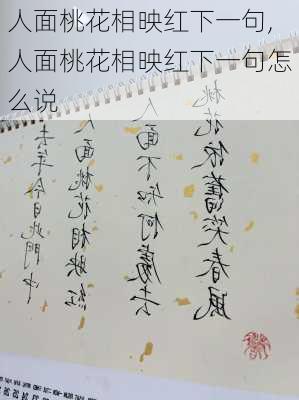 人面桃花相映红下一句,
人面桃花相映红下一句怎
么说
去年今日此門中
人面桃花相映紅
人面不知何處去
桃花依舊笑春風